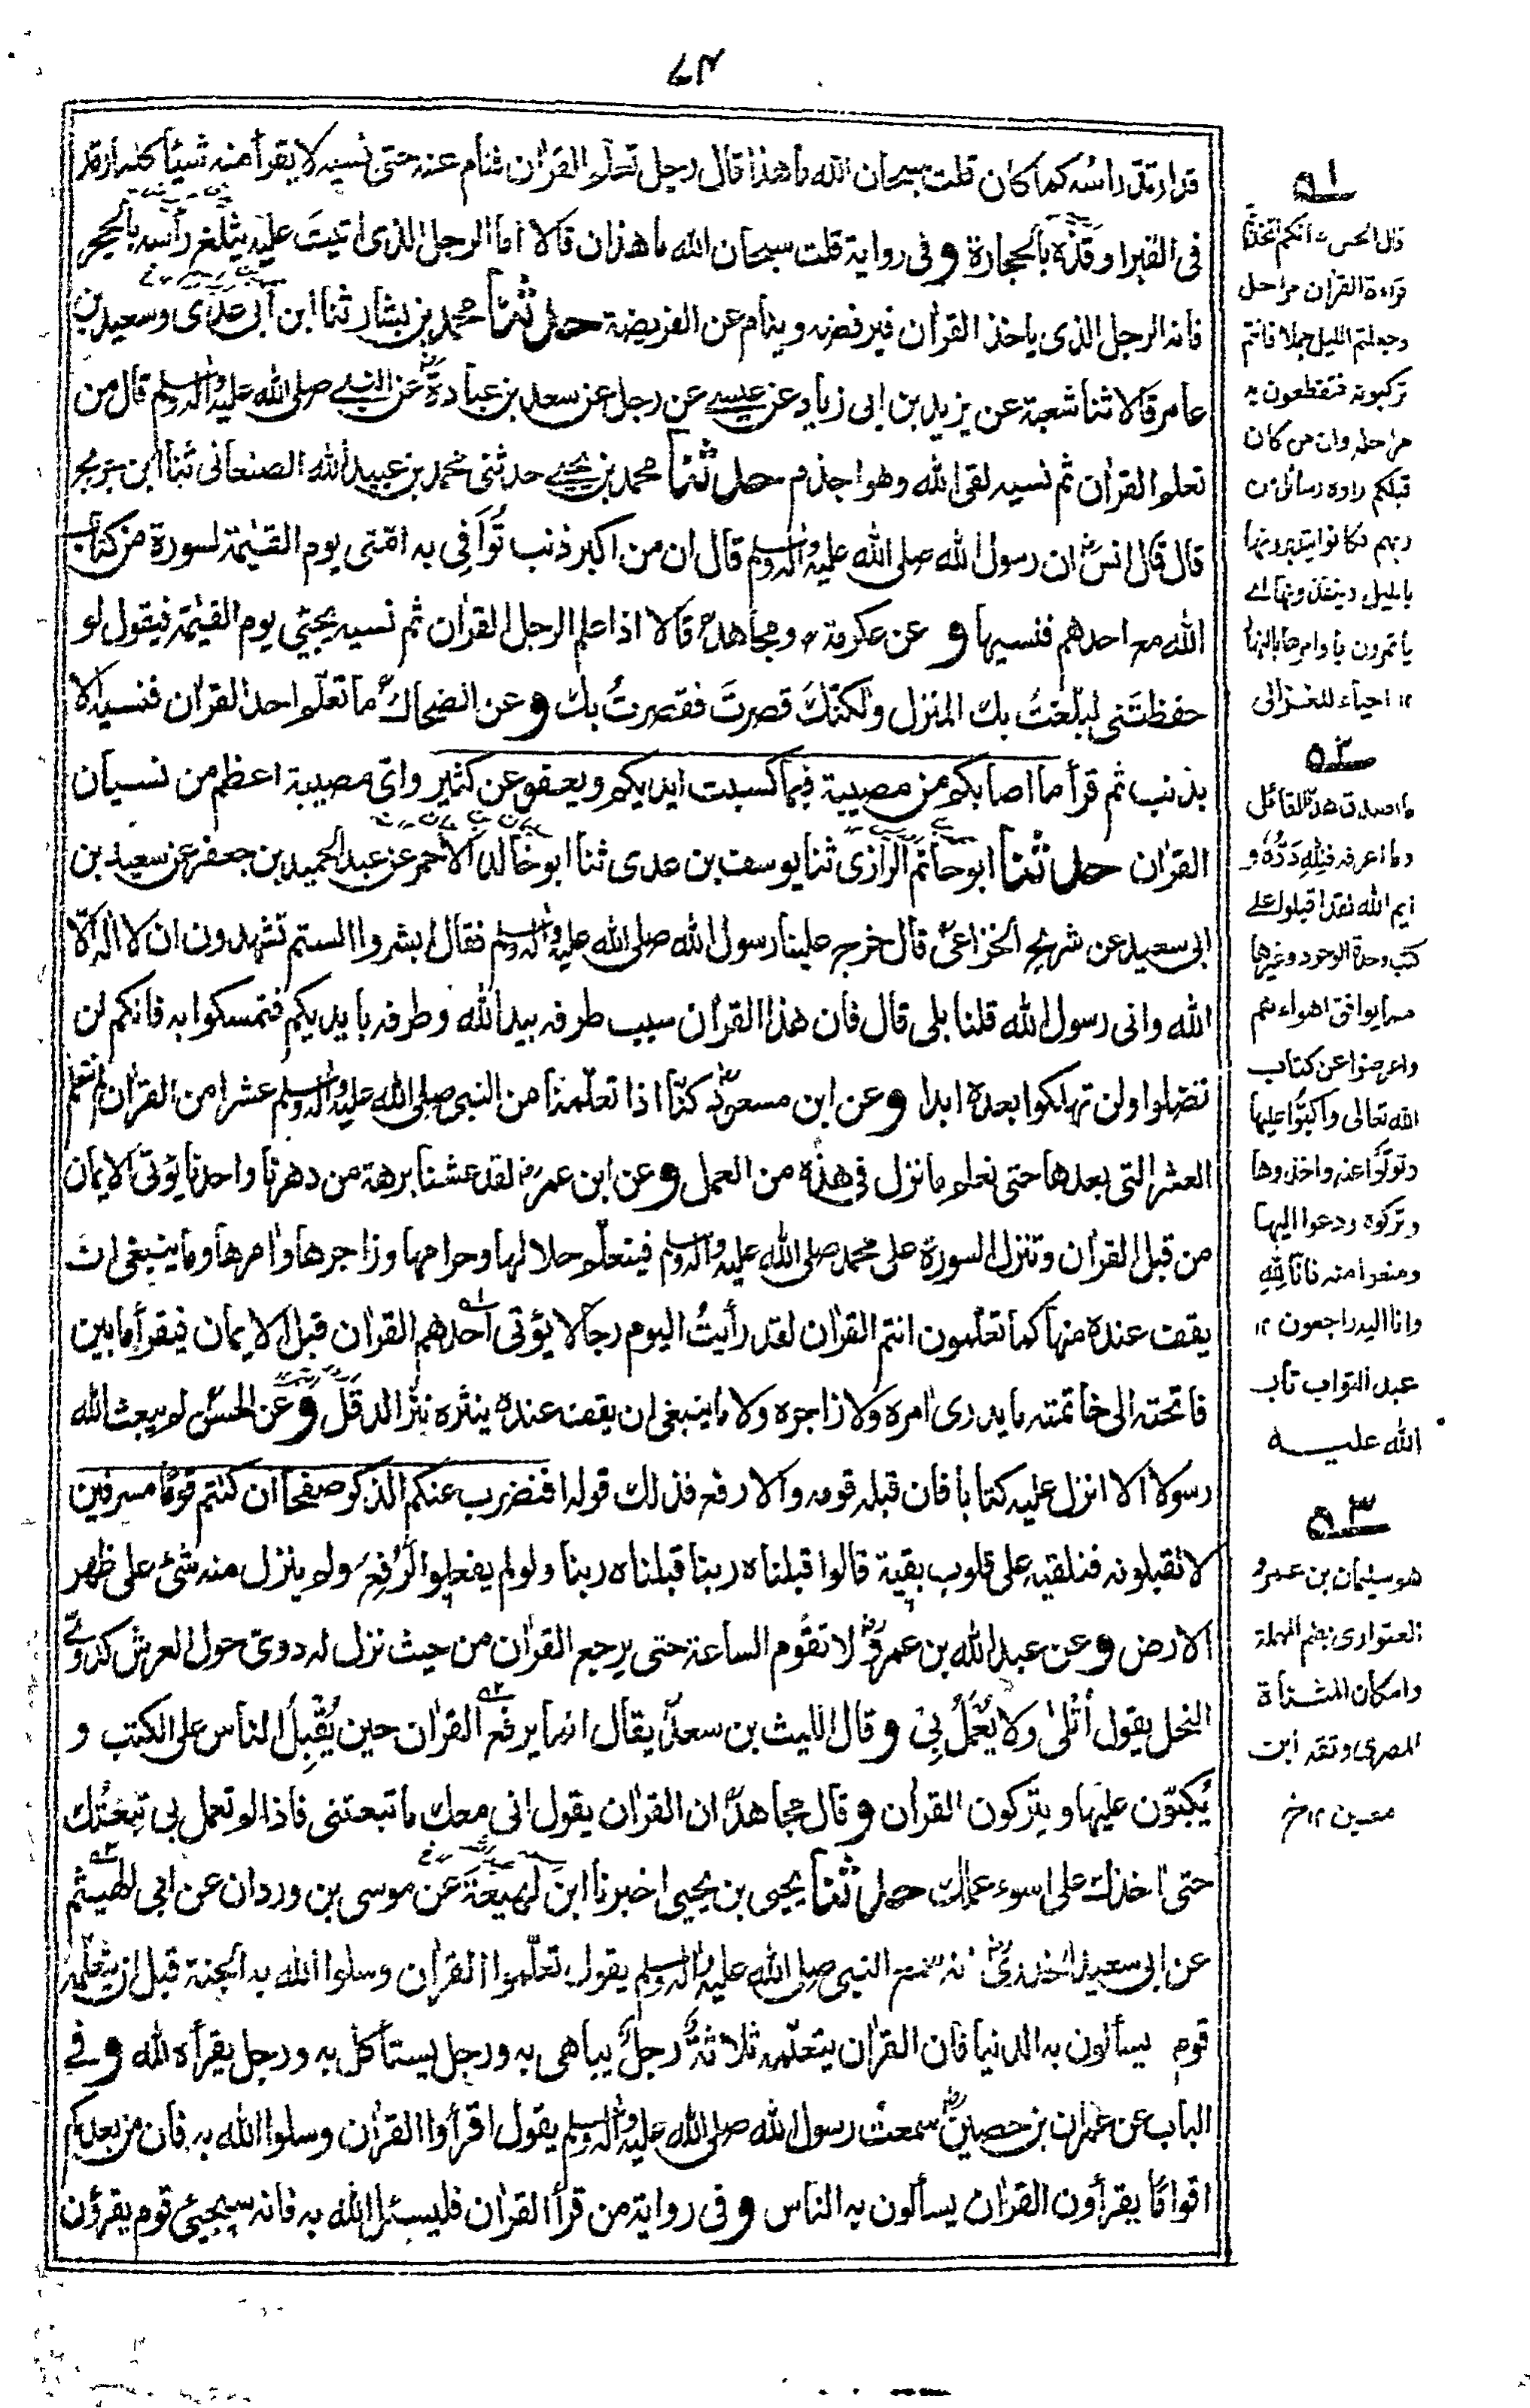 ٧٤
قد ارتد رأسه كما كان قلت سبحان الله ما هذا قال رجل تعلم القرآن فنام عنه حتى نسيه لا يقرأ منه شيئا كلما رقد
في القبر اوقذه بالحجارة و في رواية قلت سبحان الله ما هذان قالا اما الرجل الذي اتيتَ عليه يثلغ رأسه بالحجر
فانه الرجل الذي ياخذ القرآن فيرفضه وينام عن الفريضة حدثنا محمد بن بشار ثنا ابن ابي عدي وسعيد بن
عامر قالا ثنا شعبة عن يزيد بن ابي زياد عن عيسى عن رجل عن سعد بن عبادة عن النبي صلى الله عليه وآله وسلم قال من
تعلم القرآن ثم نسيه لقي الله وهو اجذم حدثنا محمد بن يحيى حدثني محمد بن عبيد الله الصنعاني ثنا ابن جريج
قال قال انس ان رسول الله صلى الله عليه وآله وسلم قال ان من اكبر ذنب تُوَافِي به امتي يوم القيٰمة لسورة من كتاب
الله مع احدهم فنسيها و عن عكرمة ومجاهد قالا اذا علم الرجل القرآن ثم نسيه يجيئ يوم القيٰمة فيقول لو
حفظتَني لبلّغتُ بك المنزل ولكنّك قصرتَ فقصرتُ بك و عن الضحاك ما تعلّم احد القرآن فنسيه الا
بذنب ثم قرأ ما اصابكم من مصيبة فبما كسبت ايديكم ويعفو عن كثير واي مصيبة اعظم من نسيان
القرآن حدثنا ابو حاتم الرازي ثنا يوسف بن عدي ثنا ابو خالد الاحمر عن عبد الحميد بن جعفر عن سعيد بن
ابي سعيد عن شريح الخزاعي قال خرج علينا رسول الله صلى الله عليه وآله وسلم فقال ابشروا الستم تشهدون ان لا اله الّا
الله واني رسول الله قلنا بلى قال فان هذا القرآن سبب طرفه بيد الله وطرفه بايديكم فتمسكوا به فانكم لن
تضلوا ولن تهلكوا بعده ابدا و عن ابن مسعود كنّا اذا تعلّمنا من النبي صلى الله عليه وآله وسلم عشرا من القرآن لم نتعلم
العشر التي بعدها حتى نعلم ما نزل في هذه من العمل و عن ابن عمر لقد عشنا برهة من دهرنا واحدنا يؤتى الايمان
من قبل القرآن وتنزل السورة على محمد صلى الله عليه وآله وسلم فيتعلّم حلالها وحرامها وزاجرها وآمرها وما ينبغي ان
يقف عنده منها كما تعلّمون انتم القرآن لقد رأيتُ اليوم رجالا يؤتى احدهم القرآن قبل الايمان فيقرأ ما بين
فاتحته الى خاتمته ما يدري آمره ولا زاجره ولا ما ينبغي ان يقف عنده ينثره نثر الدقل و عن الحسن لم يبعث الله
رسولا الا انزل عليه كتابا فان قبله قومه والا رفع فذلك قوله افنضرب عنكم الذكر صفحا ان كنتم قوما مسرفين
لا تقبلونه فنلقيه على قلوب بقية قالوا قبلناه ربنا قبلناه ربنا ولو لم يفعلوا لَرُفِعَ ولم ينزل منه شيئ على ظهر
الارض و عن عبد الله بن عمرو لا تقوم الساعة حتى يرجع القرآن من حيث نزل له دويّ حول العرش كدويّ
النحل يقول أُتْلٰى ولا يُعْمَلُ بِيْ و قال الليث بن سعد يقال انما يرفع القرآن حين يُقْبِلُ الناس على الكتب و
يُكبّون عليها ويتركون القرآن و قال مجاهد ان القرآن يقول اني معك ما تبعتني فاذا لم تعمل بي تبعتُك
حتى آخذك على اسوء عملك حدثنا يحيى بن يحيى اخبرنا ابن لهيعة عن موسى بن وردان عن ابي الهيثم
عن ابي سعيد الخدري انه سمع النبي صلى الله عليه وآله وسلم يقول تعلّموا القرآن وسلوا الله به الجنة قبل ان يتعلّمه
قوم يسألون به الدنيا فان القرآن يتعلّمه ثلاثةٌ رجلٌ يباهي به ورجل يستأكل به ورجل يقرأه لله و في
الباب عن عمران بن حصين سمعت رسول الله صلى الله عليه وآله وسلم يقول اقرأوا القرآن وسلوا الله به فان من بعدكم
اقواما يقرأون القرآن يسألون به الناس و في رواية من قرأ القرآن فليسئل الله به فانه سيجيئ قوم يقرؤن
١
قال الحسن انكم اتخذتم
قراءة القرآن مراحل
وجعلتم الليل جملا فانتم
تركبونه فتقطعون به
مراحله وان من كان
قبلكم رأوه رسائل من
ربهم فكانوا يتدبرونها
بالليل وينفذونها اے
يأتمرون باوامرها بالنهار
١٢ احياء للغزالى
٢
ما اصدق هذا القائل
وما اعرفه فلِلّٰهِ دَرُّهٗ و
ايم الله لقد اقبلوا على
كتب وحدة الوجود وغيرها
مما يوافق اهواءهم
واعرضوا عن كتاب
الله تعالى واكبّوا عليها
وتولّوا عنه واخذوها
وتركوه ودعوا اليها
ومنعوا منه فانا لله
وانا اليه راجعون ١٢
عبد التواب تاب
الله عليه
٣
هو سليمان بن عمرو
العتواري بضم المهملة
واسكان المثناة
المصري وثقه ابن
معين ١٢